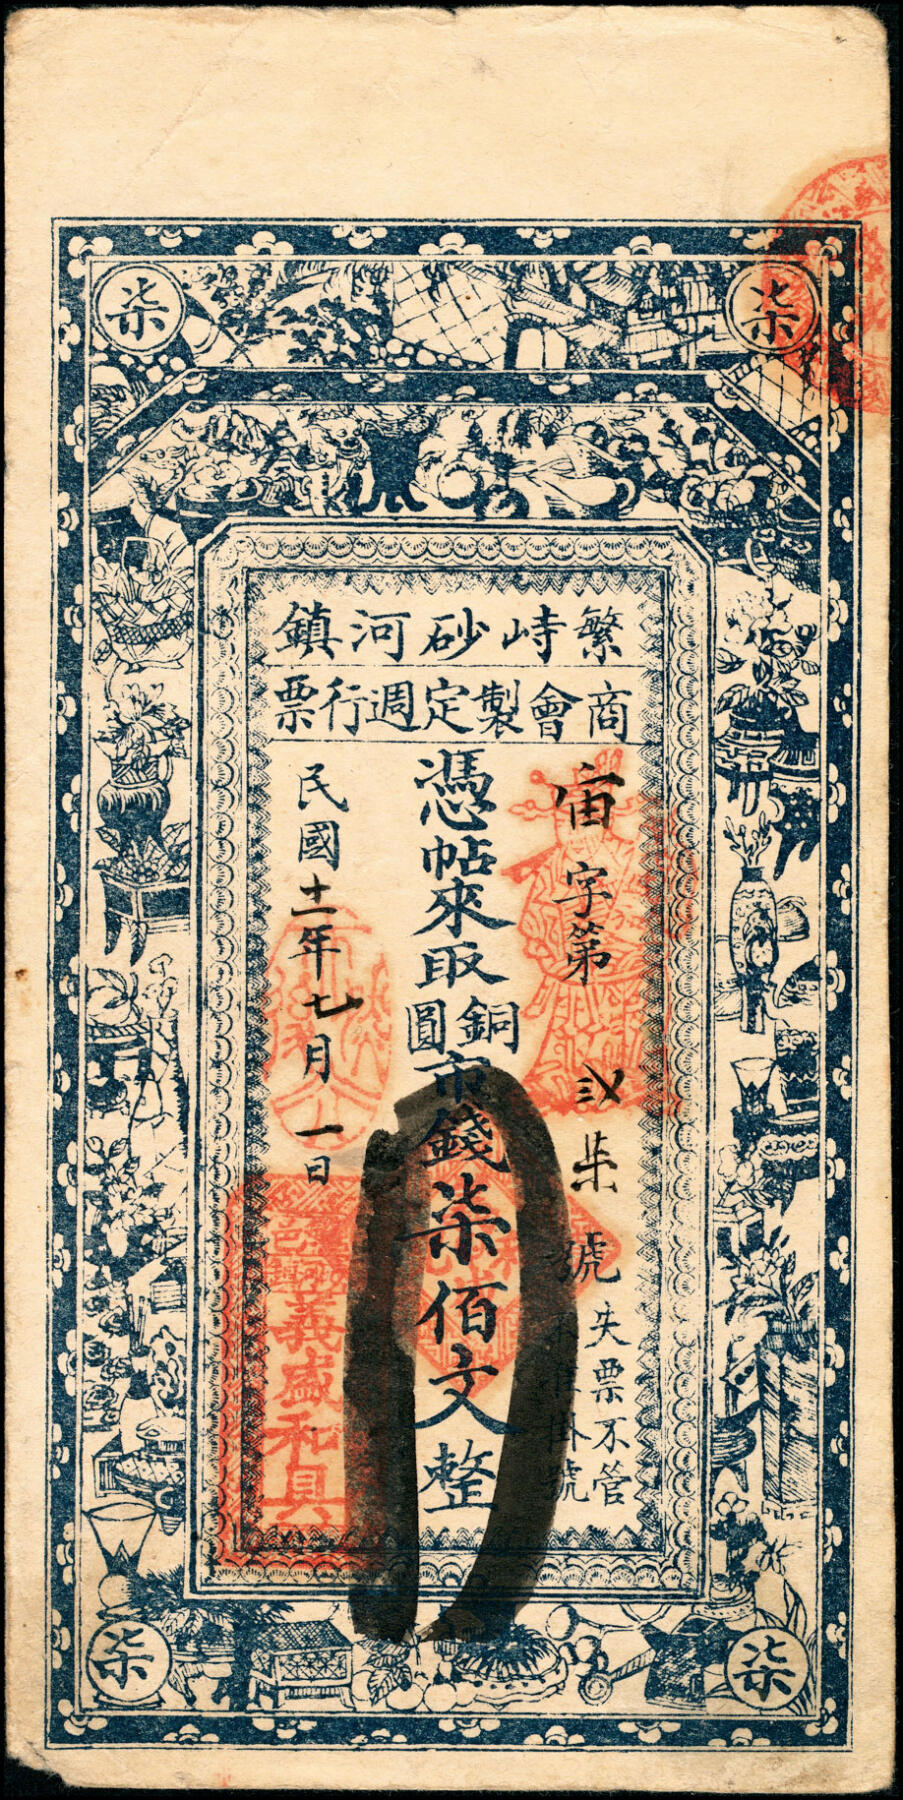 繁峙砂河鎮
商會製定週行票
宙字第弍柒號
失票不管
不准掛號
憑帖來取銅圓市錢柒佰文整
民國十一年七月一日
柒
柒
柒
柒
義盛和具